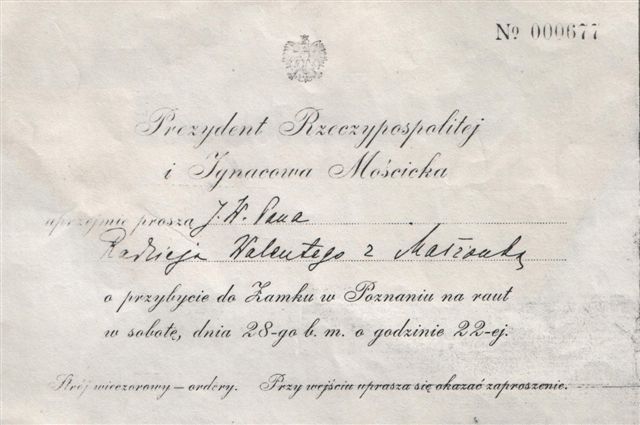 No 000677
Prezydent Rzeczypospolitej
i Ignacowa Mościcka
uprzejmie proszą J. W. Pana
Radzieja Walentego z Małżonką
o przybycie do Zamku w Poznaniu na raut
w sobotę, dnia 28-go b. m. o godzinie 22-ej.
Strój wieczorowy — ordery. Przy wejściu uprasza się okazać zaproszenie.